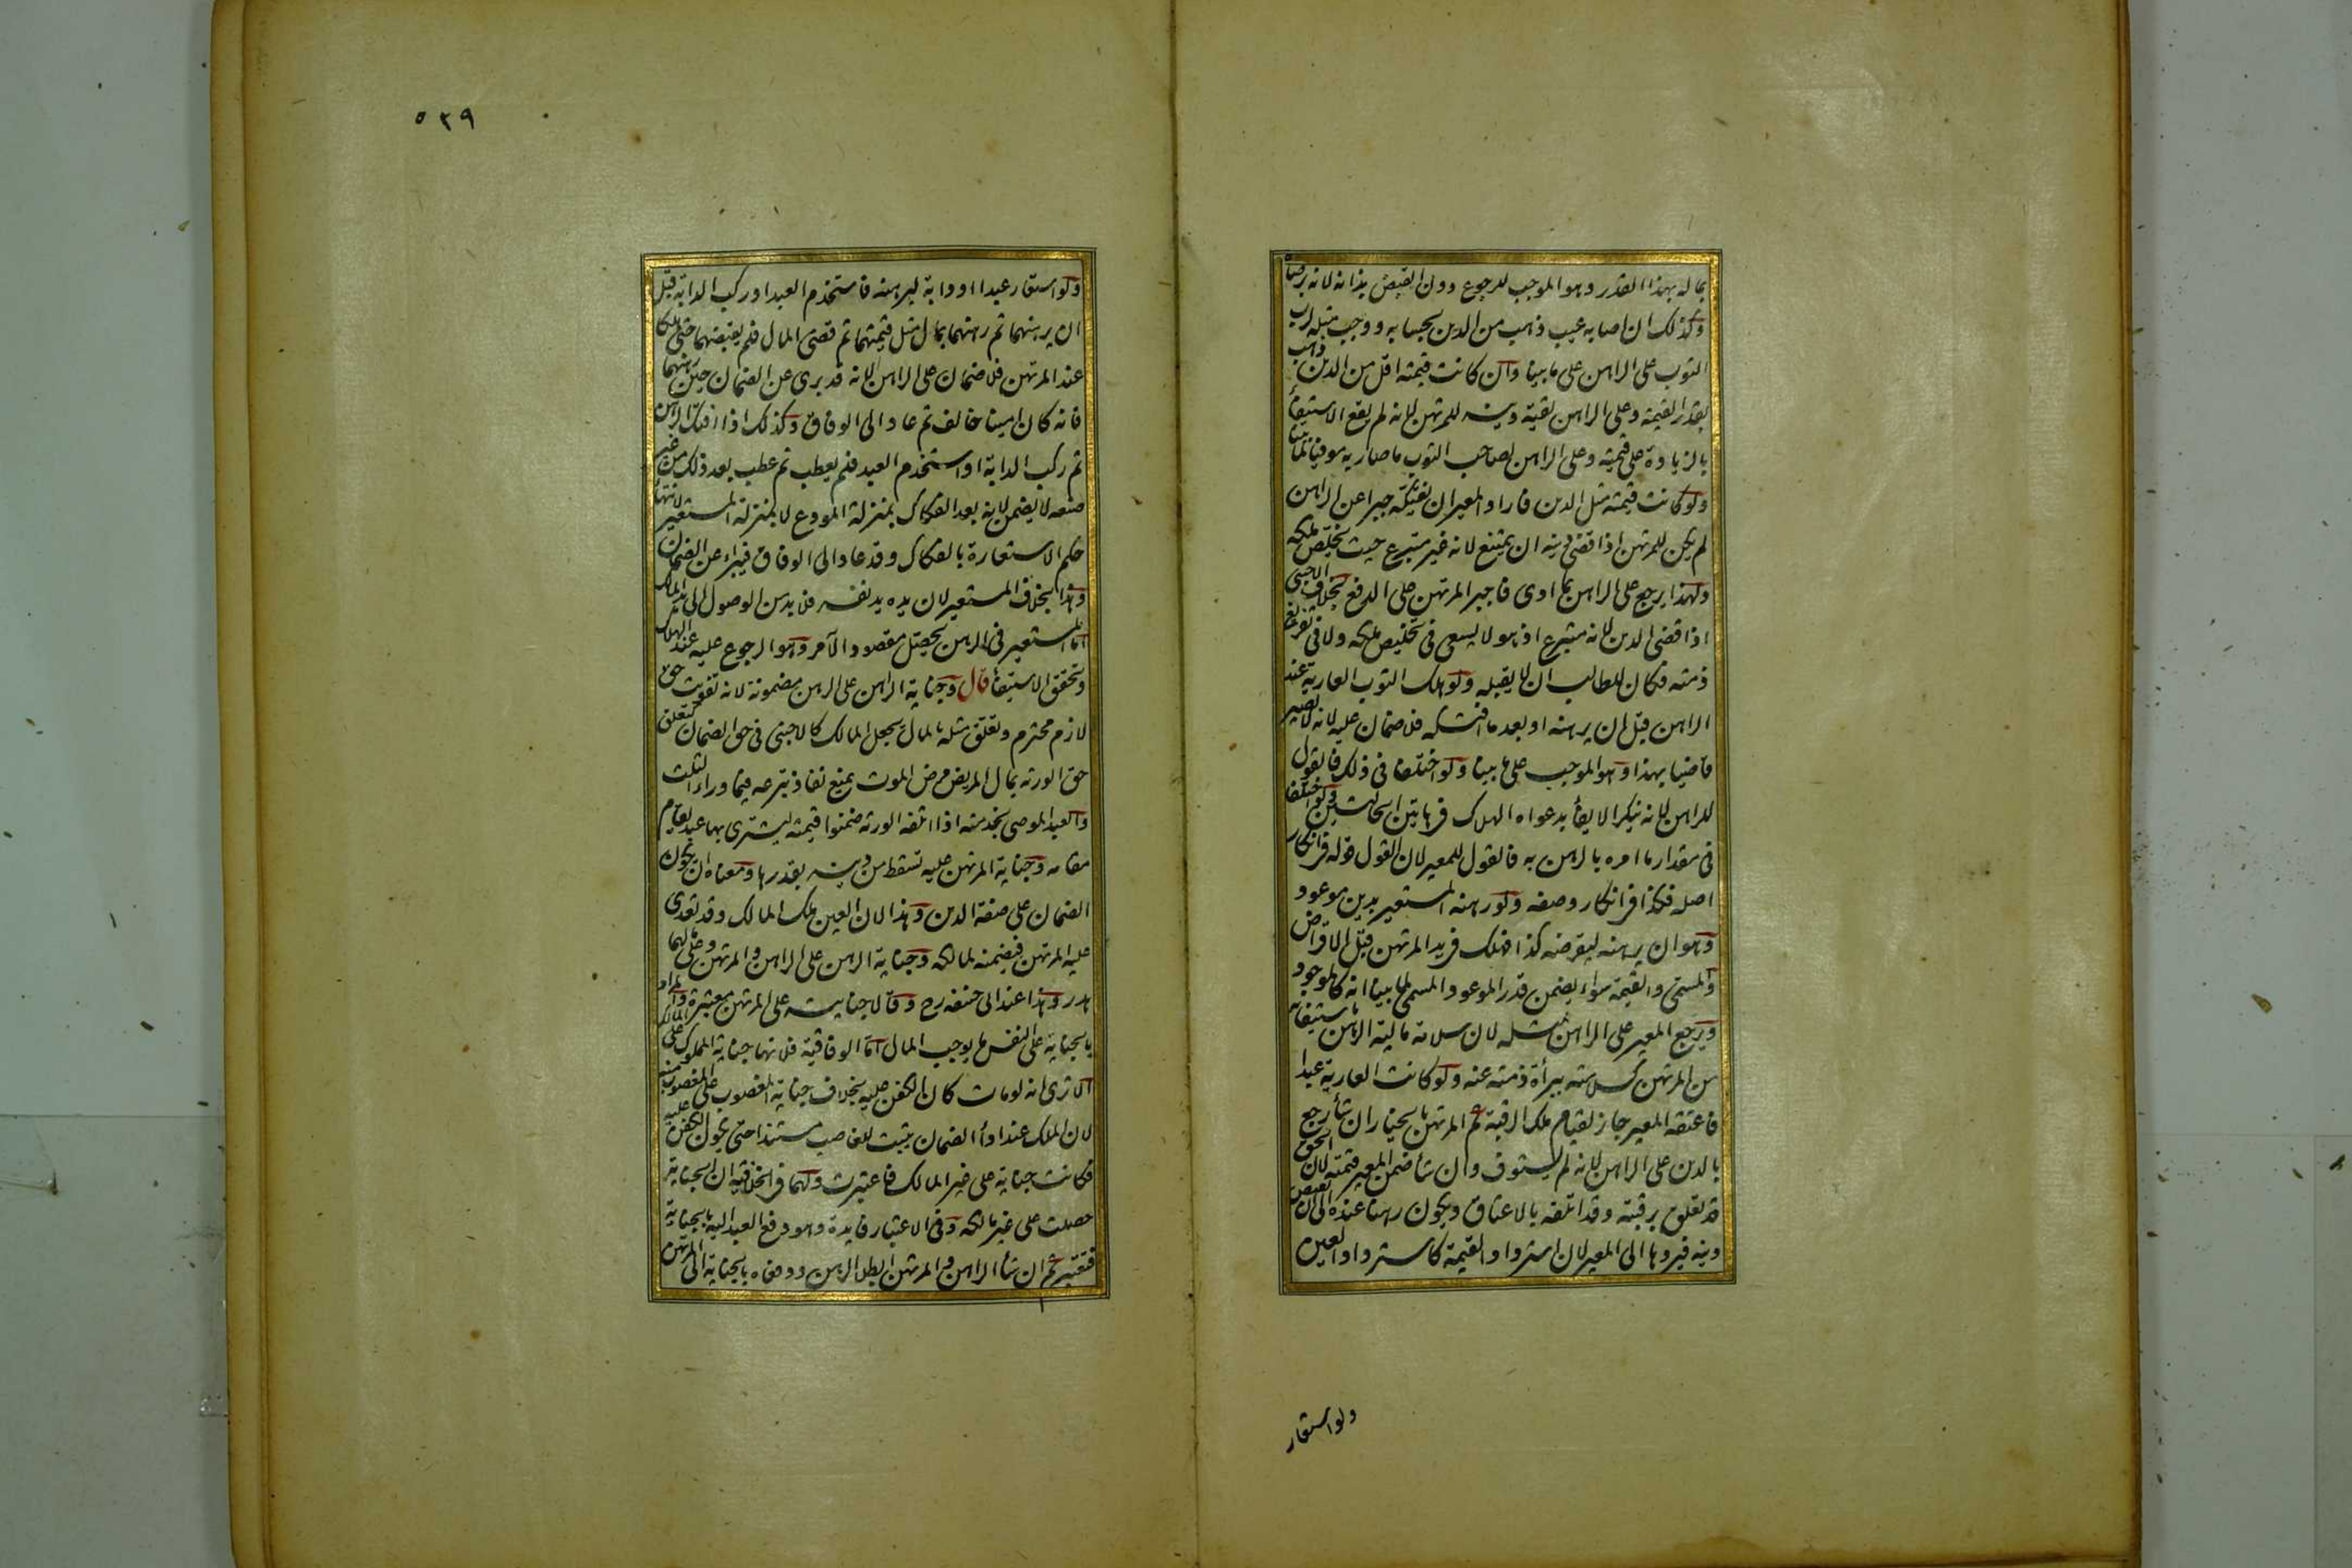 بماله بهذا القدر وهو الموجب للرجوع دون القبض بذاته لانه برضاه
وكذلك ان اصابه عيب ذهب من الدين بحسابه ووجب مثله لرب
الثوب على الراهن على ما بينا وان كانت قيمته اقل من الدين ذهب
بقدر القيمة وعلى الراهن بقية دينه للمرتهن لانه لم يقع الاستيفأ
بالزيادة على قيمته وعلى الراهن لصاحب الثوب ما صار به موفيا لما بينا
ولو كانت قيمته مثل الدين فاراد المعير ان يفتكه جبرا عن الراهن
لم يكن للمرتهن اذا قضى دينه ان يمتنع لانه غير متبرع حيث يخلص ملكه
ولهذا يرجع على الراهن بما ادى فاجبر المرتهن على الدفع بخلاف الاجنبى
اذا قضى الدين لانه متبرع اذ هو لا يسعى فى تخليص ملكه ولا فى تفريغ
ذمته فكان للطالب ان لا يقبله ولو هلك الثوب العارية عند
الراهن قبل ان يرهنه او بعد ما افتكه فلا ضمان عليه لانه لا يصير
قاضيا بهذا وهو الموجب على ما بينا ولو اختلفا فى ذلك فالقول
للراهن لانه ينكر الايفأ بدعواه الهلاك فى هاتين الحالتين ولو اختلفا
فى مقدار ما امره بالرهن به فالقول للمعير لان القول قوله فى انكار
اصله فكذا فى انكار وصفه ولو رهنه المستعير بدين موعود
وهو ان يرهنه ليقرضه كذا فهلك فى يد المرتهن قبل الاقراض
والمسمى والقيمة سواء يضمن قدر الموعود المسمى لما بينا انه كالموجود
ويرجع المعير على الراهن بمثله لان سلامة مالية الرهن باستيفائه
من المرتهن كسلامته ببرأة ذمته عنه ولو كانت العارية عبدا
فاعتقه المعير جاز لقيام ملك الرقبة ثم المرتهن بالخيار ان شأ رجع
بالدين على الراهن لانه لم يستوف وان شأ ضمن المعير قيمته لان الحق
قد تعلق برقبته وقد اتلفه بالاعتاق ويكون رهنا عنده الى ان يقبض
دينه فيردها الى المعير لان استرداد القيمة كاسترداد العين
ولو استعار
٥٣٩
ولو استعار عبدا او دابة ليرهنه فاستخدم العبد او ركب الدابة قبل
ان يرهنهما ثم رهنهما بمال مثل قيمتهما ثم قضى المال فلم يقبضهما حتى هلكا
عند المرتهن فلا ضمان على الراهن لانه قد برى عن الضمان حين رهنهما
فانه كان امينا خالف ثم عاد الى الوفاق وكذلك اذا افتك الراهن
ثم ركب الدابة او استخدم العبد فلم يعطب ثم عطب بعد ذلك من غير
صنعه لا يضمن لانه بعد الفكاك بمنزلة المودع لا بمنزلة المستعير لانتهأ
حكم الاستعارة بالفكاك وقد عاد الى الوفاق فيبراء عن الضمان
وهذا بخلاف المستعير لان يده يد نفسه فلا بد من الوصول الى يد المالك
اما المستعير فى الرهن يحصل مقصود الآمر وهو الرجوع عليه عند الهلاك
وتحقق الاستيفأ قال وجناية الراهن على الرهن مضمونة لانه تفويت حق
لازم محترم وتعلق مثله بالمال يجعل المالك كالاجنبى فى حق الضمان كتعلق
حق الورثه بمال المريض مرض الموت يمنع نفاذ تبرعه فيما وراء الثلث
والعبد الموصى بخدمته اذا اتلفه الورثه ضمنوا قيمته ليشترى بها عبد يقام
مقامه وجناية المرتهن عليه تسقط من دينه بقدرها ومعناه ان يكون
الضمان على صفة الدين وهذا لان العين ملك المالك وقد تعدى
عليه المرتهن فيضمنه لمالكه وجناية الرهن على الراهن والمرتهن وعلى مالهما
هدر وهذا عند ابى حنيفه رح وقالا جنايته على المرتهن معتبرة والمراد
بالجناية على النفس ما يوجب المال اما الوفاقية فلانها جناية المملوك على المالك
الا ترى انه لو مات كان الكفن عليه بخلاف جناية المغصوب على المغصوب منه
لان الملك عند ادأ الضمان يثبت للغاصب مستندا حتى يكون الكفن عليه
فكانت جناية على غير المالك فاعتبرت ولهما فى الخلافية ان الجناية
حصلت على غير مالكه وفى الاعتبار فايدة وهو دفع العبد اليه بالجناية
فتعتبر ثم ان شأ الراهن والمرتهن ابطلا الرهن ودفعاه بالجناية الى المرتهن